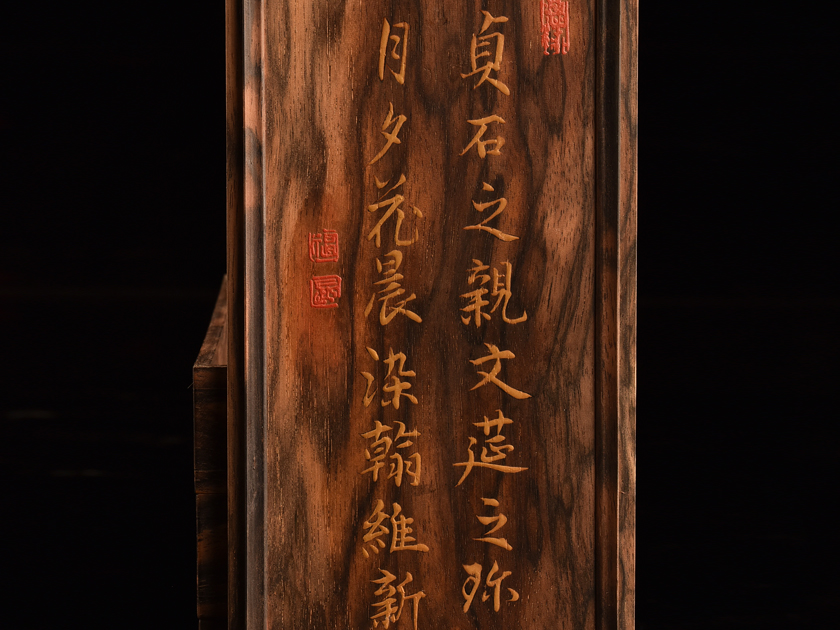 貞石之親文莚之珎
月夕花晨染翰維新